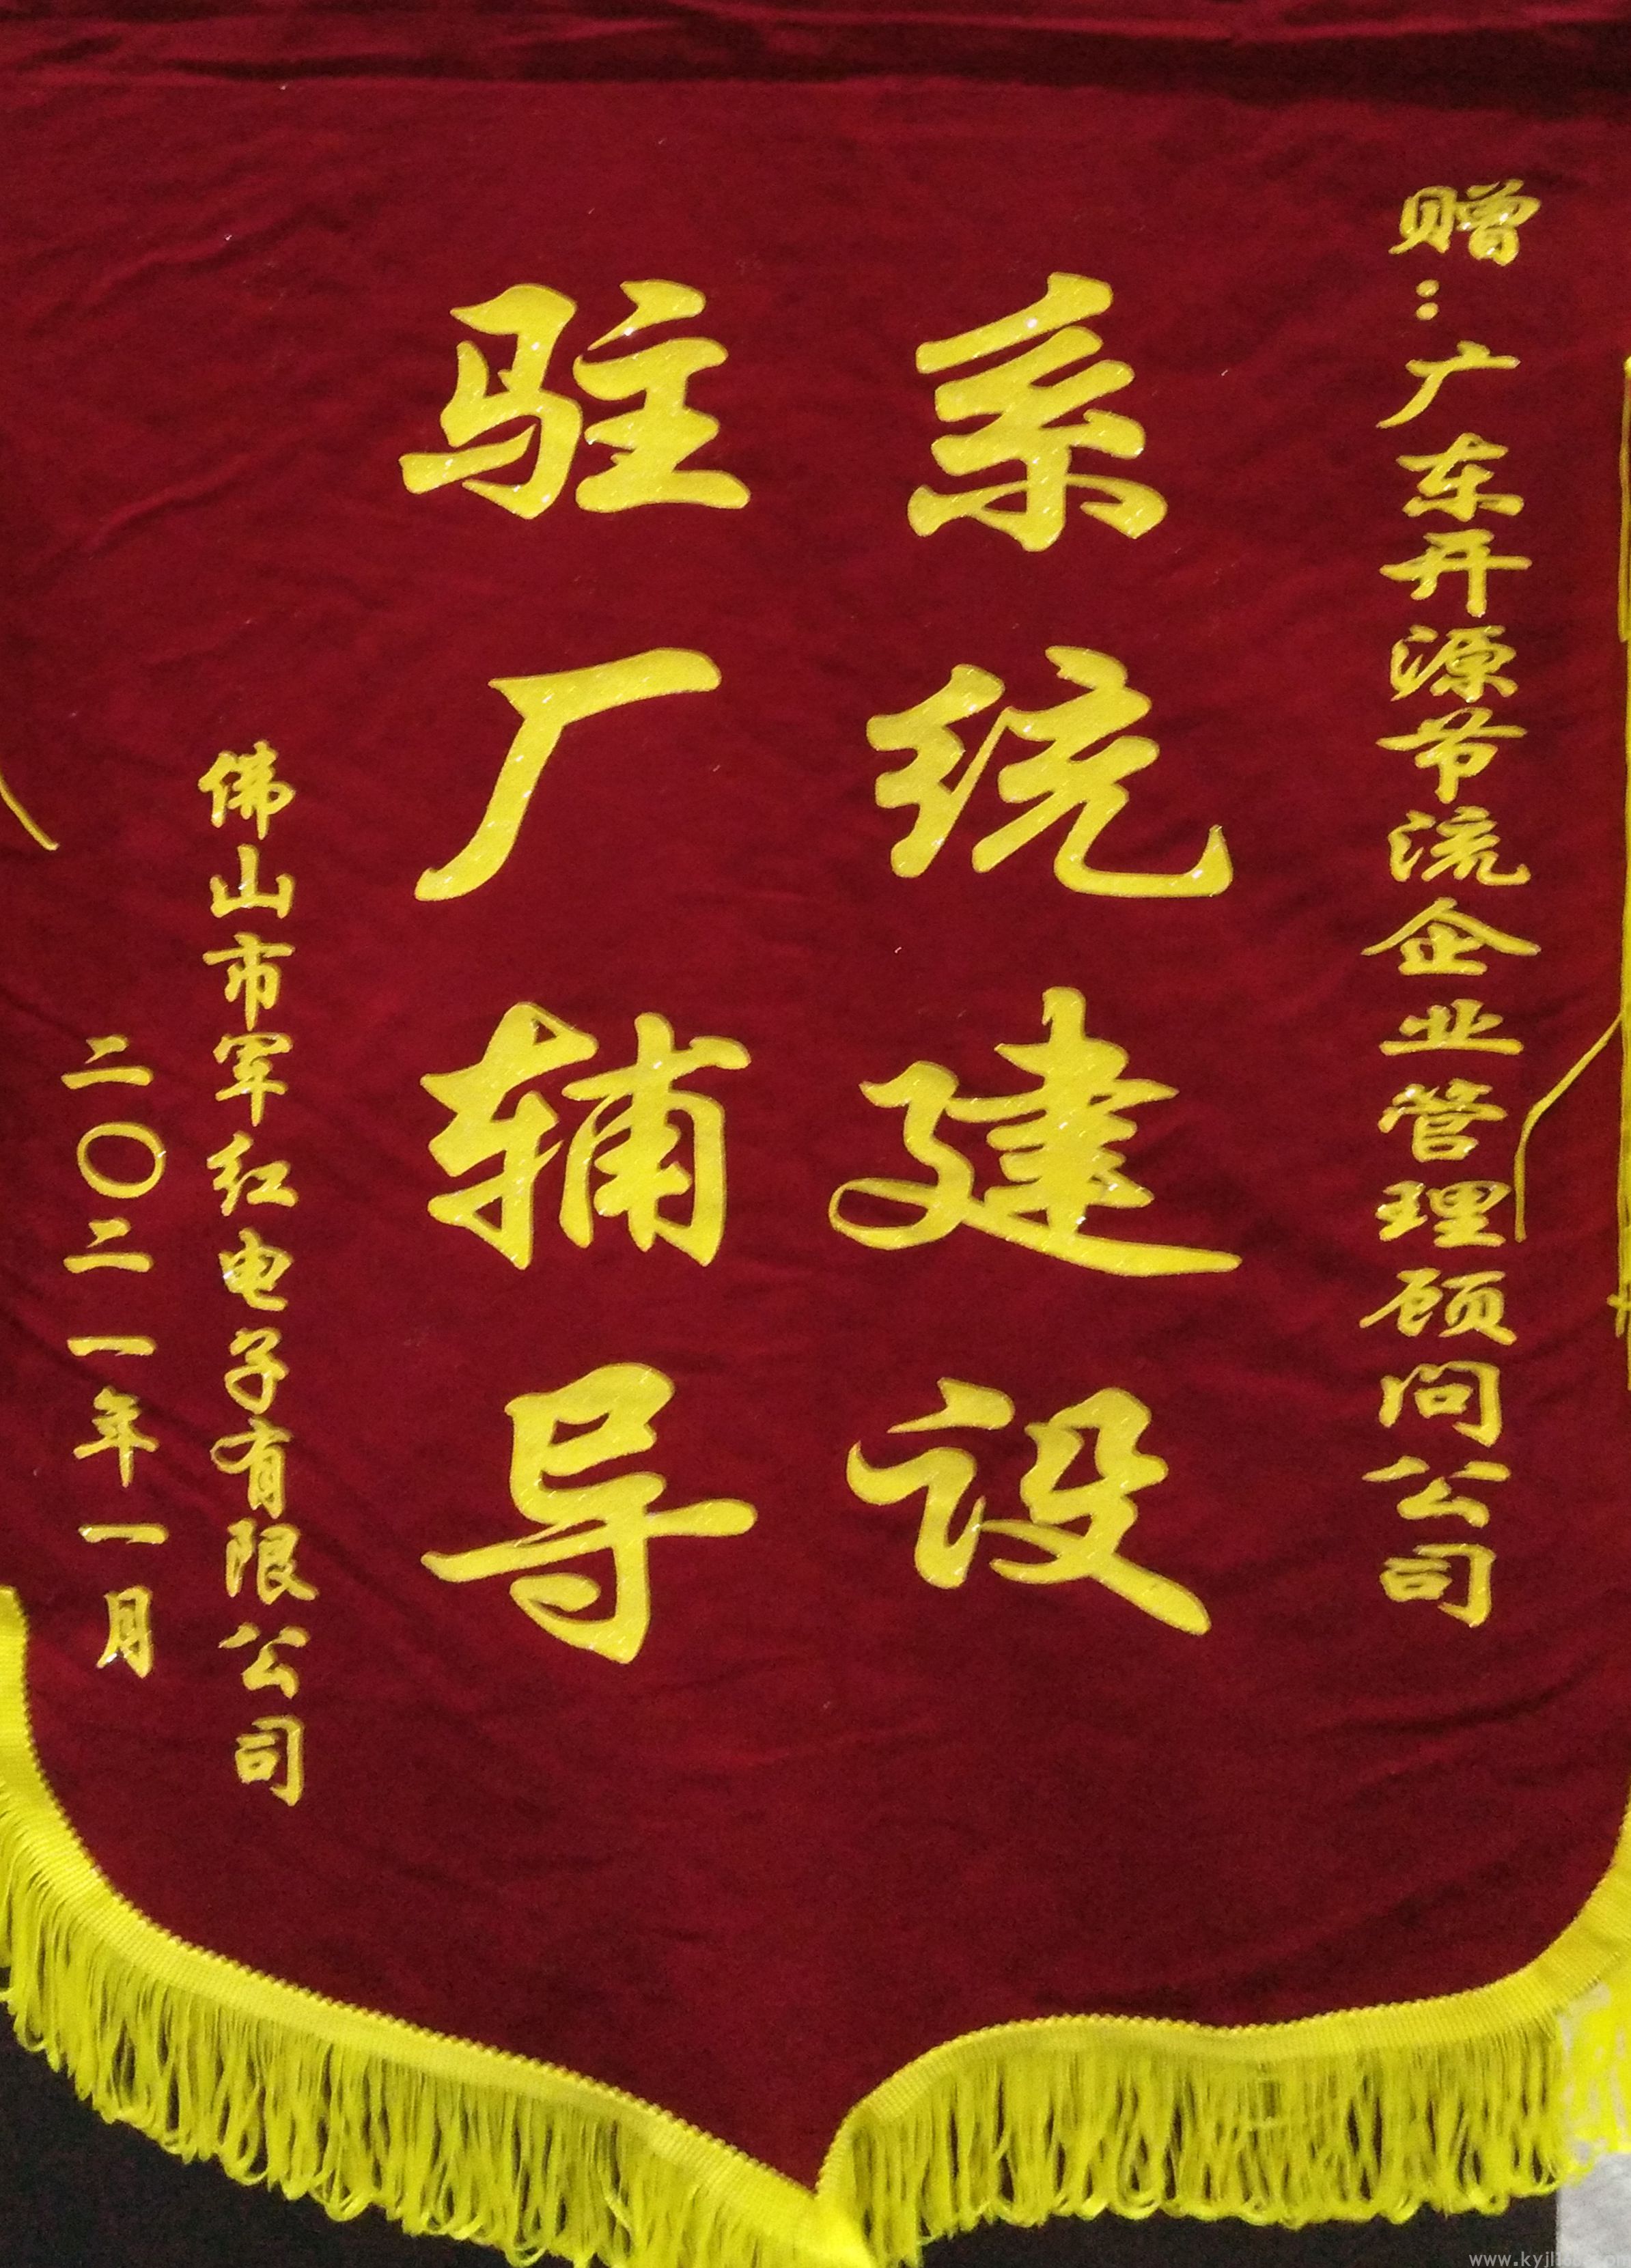 赠:广东开源节流企业管理顾问公司
系统建设
驻厂辅导
佛山市军红电子有限公司
二〇二一年一月